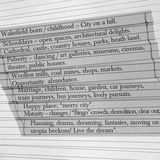 Wakefield born / childhood – City on a hill.
Schooldays – open spaces, architectural delights.
Cathedral, castle, country houses, parks, heath land.
Puberty – dancing / art galleries, museums, cinemas,
theatre, public houses.
Woollen mills, coal mines, shops, markets.
Opportunity abundance.
Marriage, children, house, garden, car journeys,
train journeys, bus journeys, lively pursuits.
Happy place; "merry city"
Maturity – change / "Bingo" crowd, demolition, clear out
Planning, drama, dreaming, fantasies, moving on
utopia beckons! Live the dream".